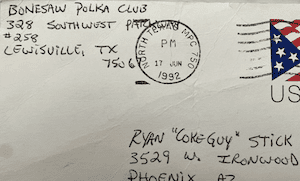 BONESAW POLKA CLUB
328 SOUTHWEST PARKWAY
#258
LEWISVILLE, TX
7506
NORTH TEXAS MPC 750
PM
17 JUN
1992
US
RYAN "COKEGUY" STICK
3529 W. IRONWOOD
PHOENIX AZ